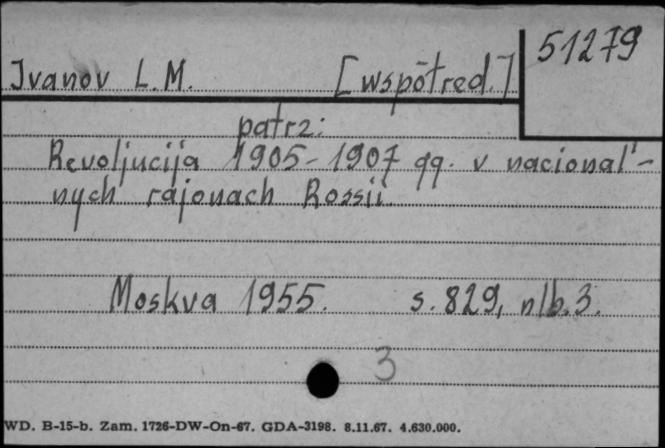 51279
Ivanov L.M. [współred.]
patrz:
Revoljucija 1905-1907 gg. v nacional'-
nych rajonach Rossii.
Moskva 1955. s. 829, nlb. 3.
3
WD. B-15-b. Zam. 1726-DW-On-67. GDA-3198. 8.11.67. 4.630.000.